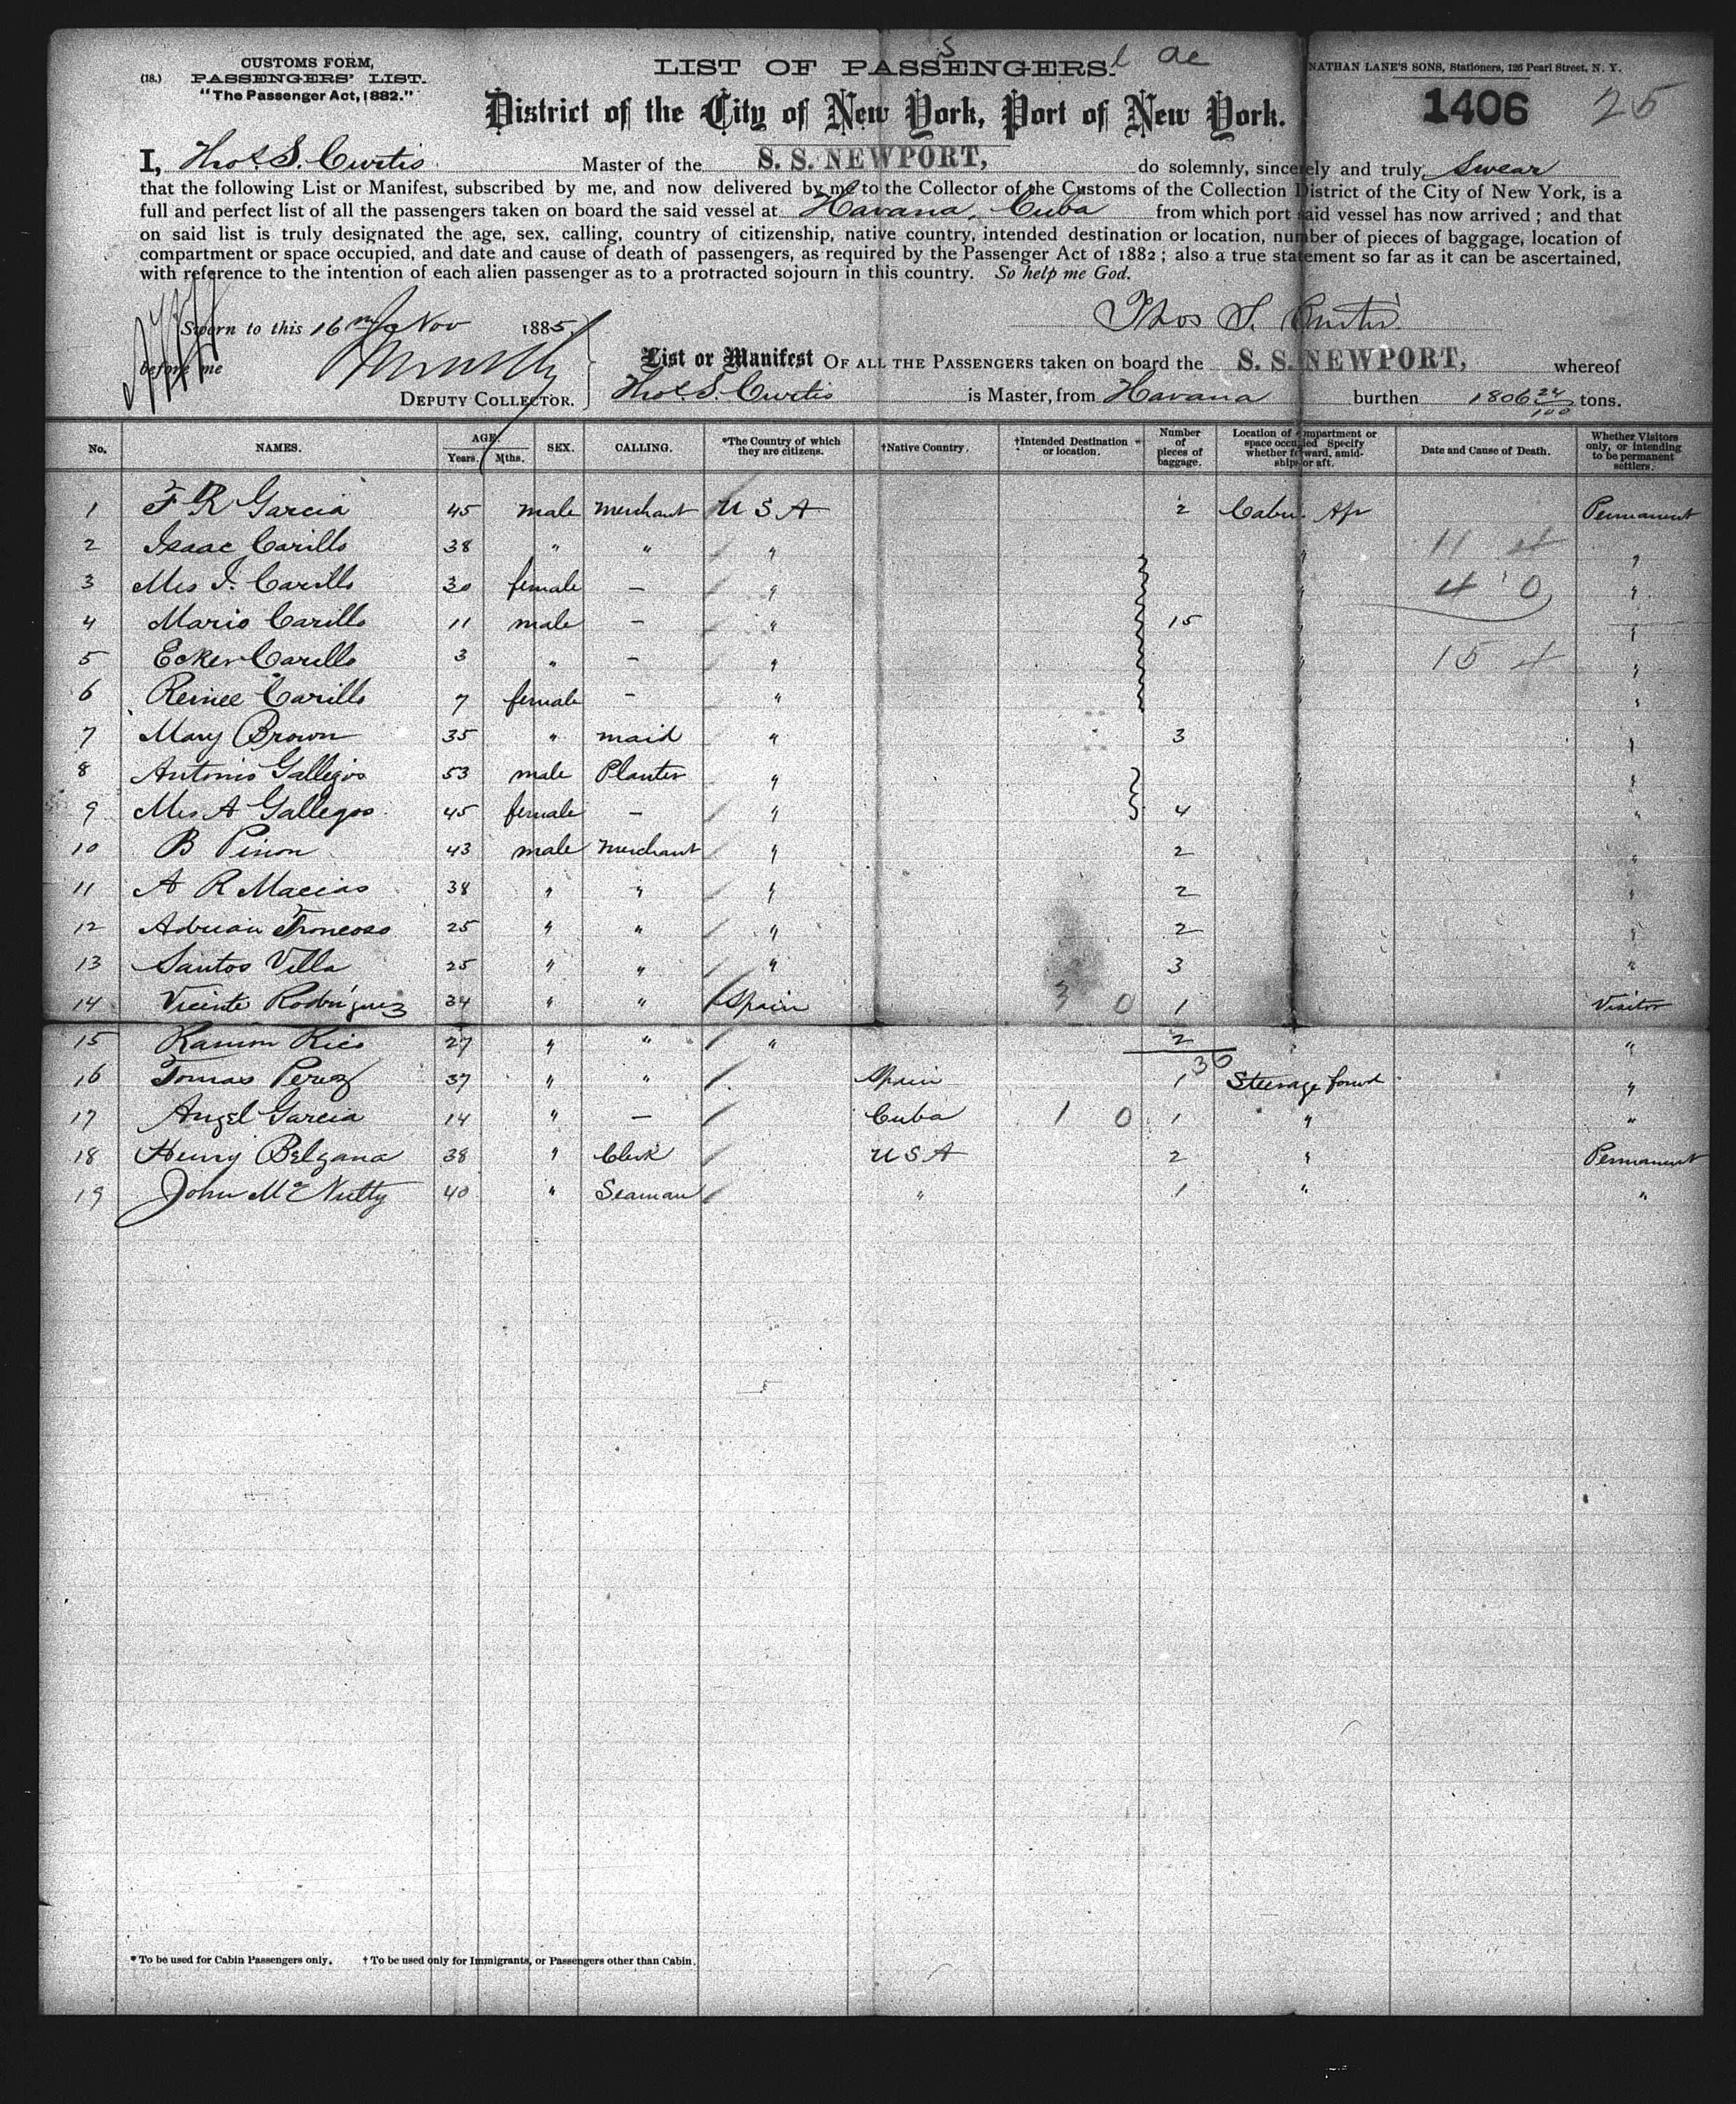 CUSTOMS FORM,
(18.) PASSENGERS' LIST.
"The Passenger Act, 1882."
LIST OF PASSENGERS.
NATHAN LANE'S SONS, Stationers, 126 Pearl Street, N. Y.
District of the City of New York, Port of New York.
1406 25
I, Thos. S. Curtis Master of the S. S. NEWPORT, do solemnly, sincerely and truly swear
that the following List or Manifest, subscribed by me, and now delivered by me to the Collector of the Customs of the Collection District of the City of New York, is a
full and perfect list of all the passengers taken on board the said vessel at Havana, Cuba from which port said vessel has now arrived; and that
on said list is truly designated the age, sex, calling, country of citizenship, native country, intended destination or location, number of pieces of baggage, location of
compartment or space occupied, and date and cause of death of passengers, as required by the Passenger Act of 1882; also a true statement so far as it can be ascertained,
with reference to the intention of each alien passenger as to a protracted sojourn in this country. So help me God.
Sworn to this 16 Nov 1885
Thos S. Curtis
before me
List or Manifest OF ALL THE PASSENGERS taken on board the S. S. NEWPORT, whereof
DEPUTY COLLECTOR.
Thos. S. Curtis is Master, from Havana burthen 1806 24/100 tons.
No. NAMES. AGE. Years. Mths. SEX. CALLING. *The Country of which they are citizens. †Native Country. †Intended Destination or location. Number of pieces of baggage. Location of compartment or space occupied Specify whether forward, amidships or aft. Date and Cause of Death. Whether Visitors only, or intending to be permanent settlers.
1 F R Garcia 45 male merchant U S A 2 Cabin Aft Permanent
2 Isaac Carillo 38 " " " " 11 4 "
3 Mrs I. Carillo 30 female — " " 4 0 "
4 Mario Carillo 11 male — " 15 " "
5 Ecker Carillo 3 " — " " 15 4 "
6 Reinee Carillo 7 female — " " "
7 Mary Brown 35 " maid " 3 "
8 Antonio Gallegos 53 male Planter " " "
9 Mrs A Gallegos 45 female — " 4 " "
10 B Pinon 43 male merchant " 2 " "
11 A R Macias 38 " " " 2 " "
12 Adrian Troncoso 25 " " " 2 "
13 Santos Villa 25 " " " 3 "
14 Vicente Rodriguez 34 " " Spain 3 0 1 Visitor
15 Ramon Rico 27 " " " 2 " "
36
16 Tomas Perez 37 " " Spain 1 Steerage forwd "
17 Angel Garcia 14 " — Cuba 1 0 1 " "
18 Henry Belzana 38 " Clerk U S A 2 " Permanent
19 John McNulty 40 " Seaman " 1 " "
*To be used for Cabin Passengers only. †To be used only for Immigrants, or Passengers other than Cabin.